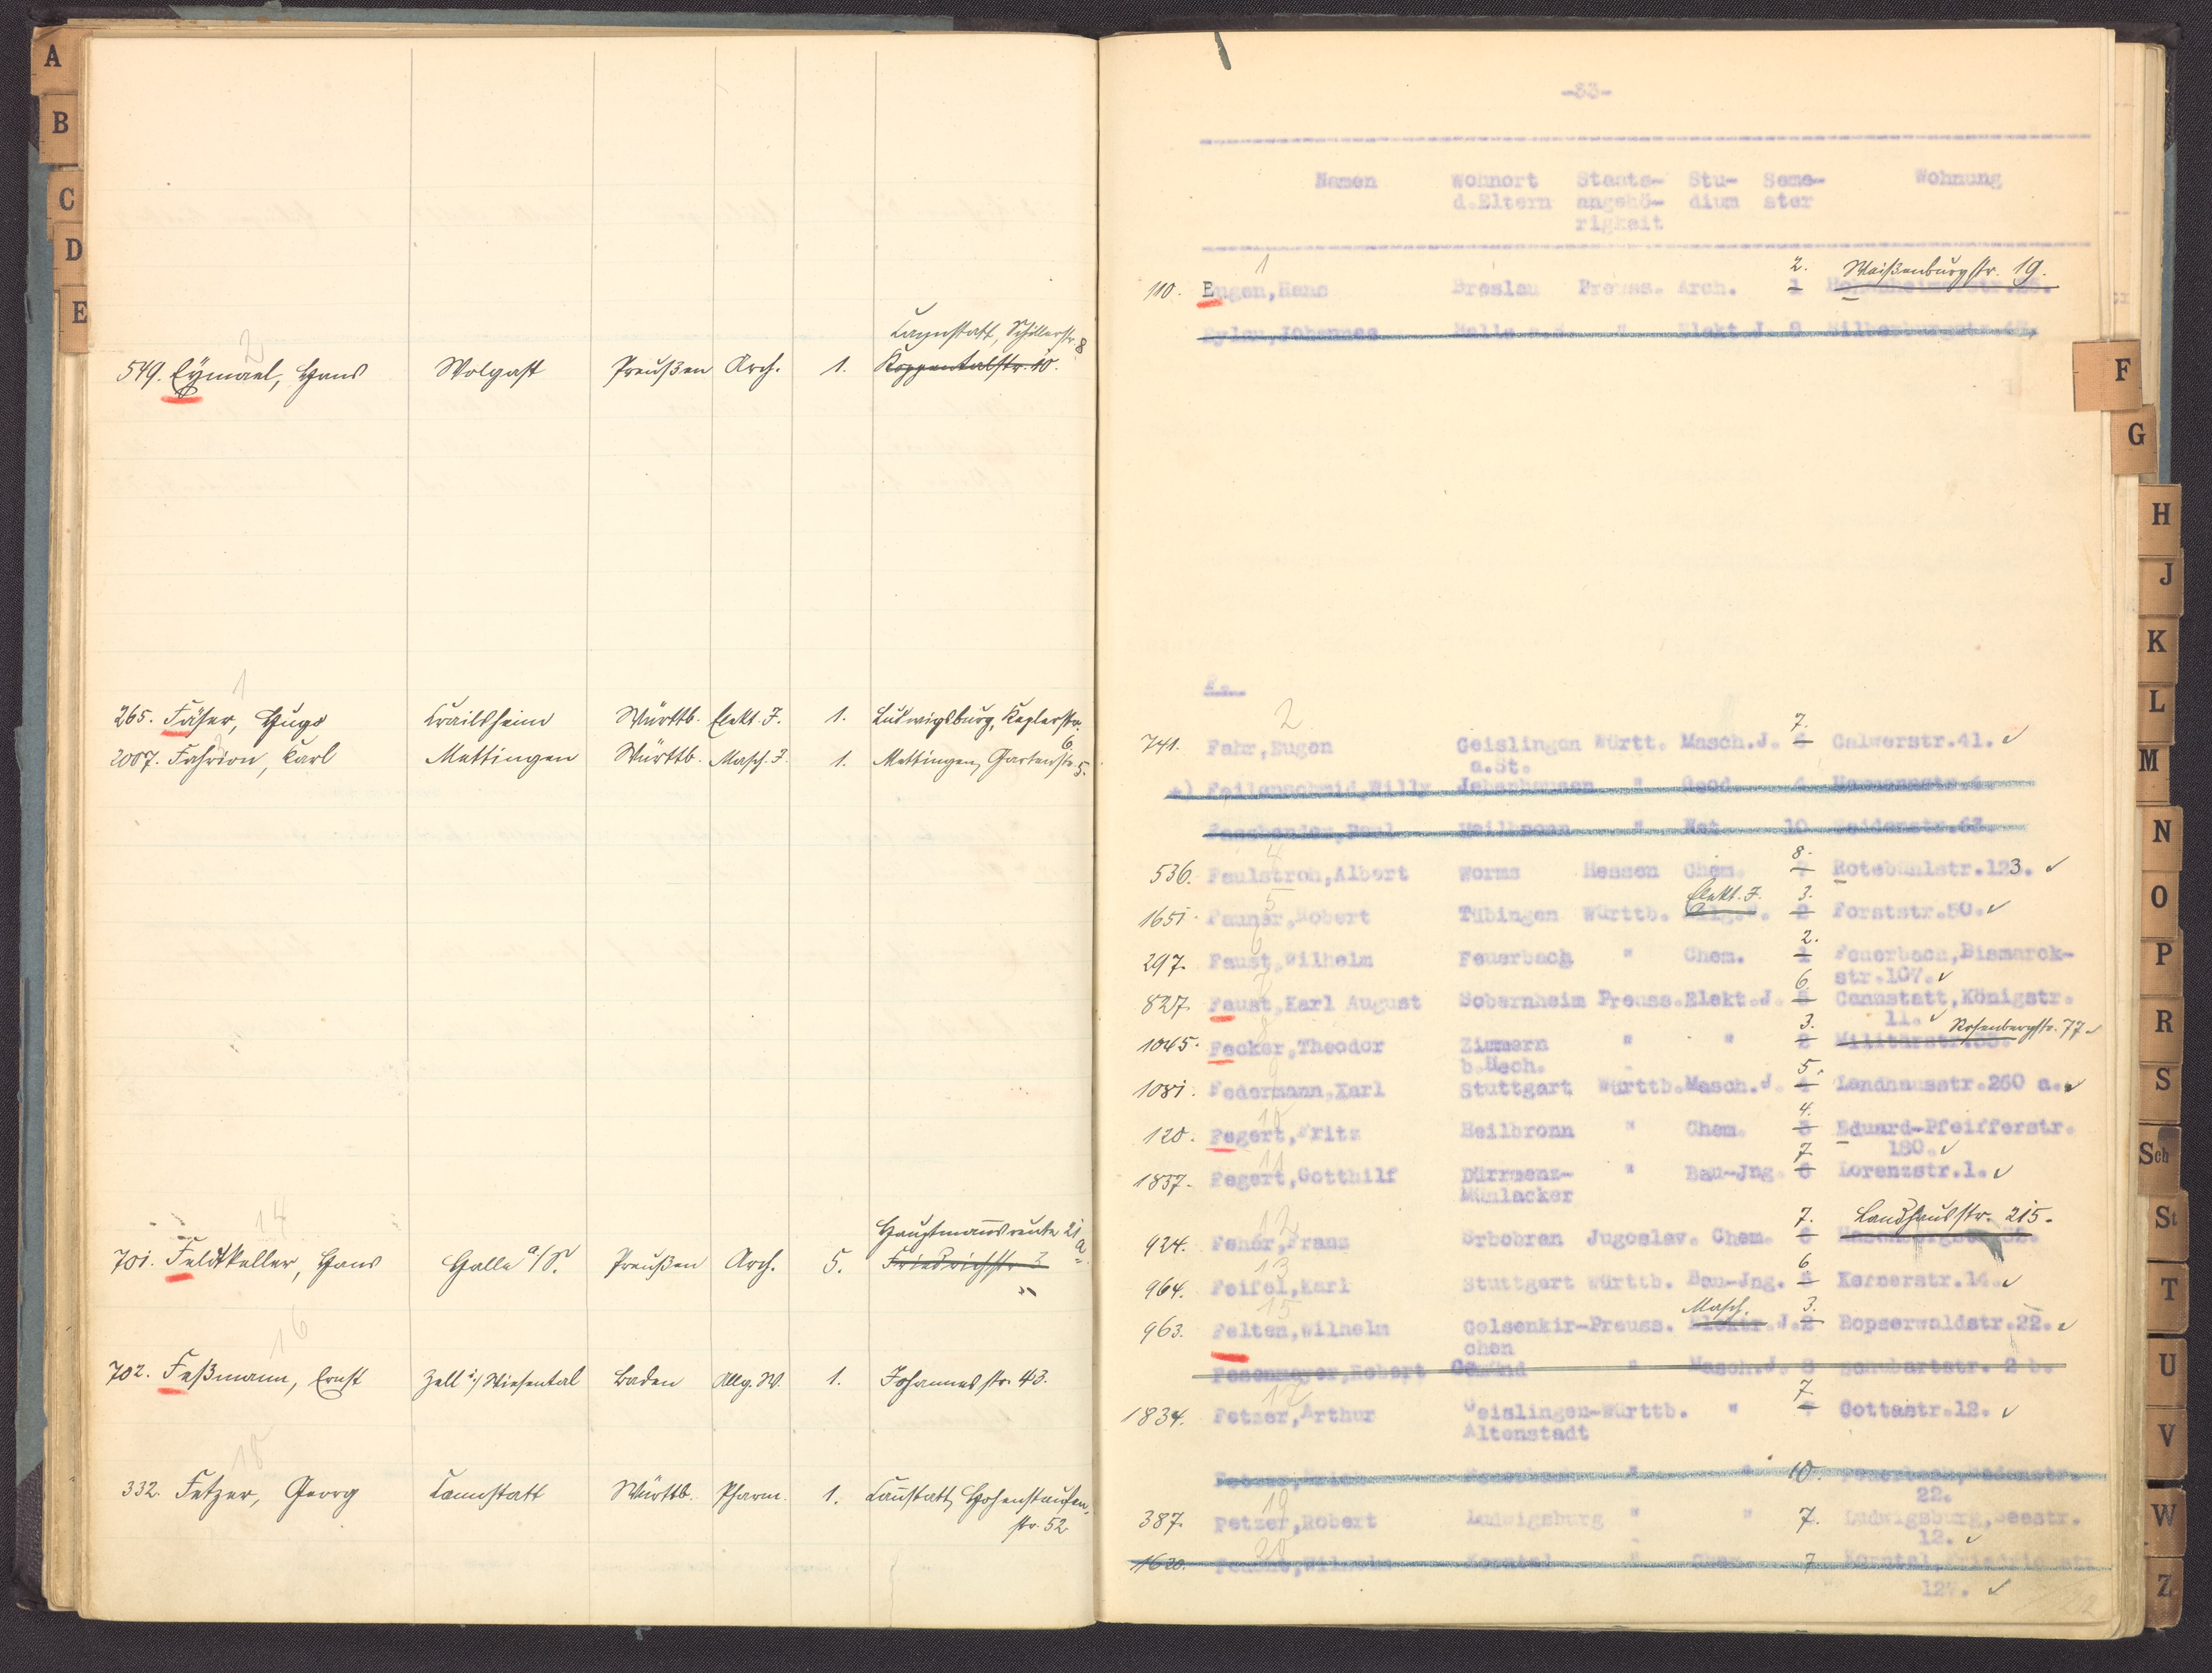 A
B
C
D
E
2
Cannstatt, Schillerstr. 8
549. Eÿmael, Hans Wolgast Preußen Arch. 1. Koppentalstr. 10.
1
265. Fäser, Hugo Crailsheim Württb. Elekt. J. 1. Ludwigsburg, Keplerstr. 6.
2007. Fahrion, Karl Mettingen Württb. Masch. J. 1. Mettingen, Gartenstr. 5.
14
Hauptmannsreute 21 a
701. Feldtkeller, Hans Halle a/S. Preußen Arch. 5. Friedrichstr. 3
16
702. Feßmann, Ernst Zell i/Wiesental Baden Allg. W. 1. Johannesstr. 43.
18
332. Fetzer, Georg Cannstatt Württb. Pharm. 1. Canstatt, Hohenstaufen-
str. 52
-83-
Namen Wohnort Staats- Stu- Seme- Wohnung
d.Eltern angehö- dium ster
rigkeit
1 2. Waißenburgstr. 19.
110. Eugen,Hans Breslau Preuss. Arch. 1 Hohenheimerstr.
Eylau,Johannes Halle a.S. " Elekt J.
F.
2 7.
741. Fahr,Eugen Geislingen Württ. Masch.J. Calwerstr.41. ✓
a.St.
*) Feilenschmid,Willy Jebenhausen " Geod. 4 Hermannstr.4.
Heilbronn " Nat 10 Weidenstr.63.
4 8.
536. Faulstroh,Albert Worms Hessen Chem. 7 Rotebühlstr.123. ✓
5 Elekt. J. 3.
1651. Fauner,Robert Tübingen Württb. Allg.W. 2 Forststr.50. ✓
6 2.
297. Faust,Wilhelm Feuerbach " Chem. 1 Feuerbach,Bismarck-
7 6. str.107. ✓
827. Faust,Karl August Sobernheim Preuss.Elekt.J. 5 Cannstatt,Königstr.
8 3. 11. ✓ Rosenbergstr. 77 ✓
1045. Fecker,Theodor Zimmern " " 2 Militärstr.
b.Hech.
9 5.
1081. Federmann,Karl Stuttgart Württb.Masch.J. 4 Landhausstr.260 a. ✓
10 4.
120. Fegert,Fritz Heilbronn " Chem. 3 Eduard-Pfeifferstr.
11 7. 180. ✓
1837. Fegert,Gotthilf Dürrmenz- " Bau-Jng. 6 Lorenzstr.1. ✓
Mühlacker
12 7. Landhausstr. 215.
924. Fehér,Franz Srbobran Jugoslav. Chem. 6
13 6
964. Feifel,Karl Stuttgart Württb. Bau-Jng. 5 Kernerstr.14. ✓
15 Masch. 3.
963. Felten,Wilhelm Gelsenkir-Preuss. Elektr.J.2 Hopserwaldstr.22. ✓
chen
Fesenmeyer,Robert Gmünd " Masch.J. 8 Schubartstr. 2 b.
17 7.
1834. Fetzer,Arthur Geislingen-Württb. " Cottastr.12. ✓
Altenstadt
" " 10.
22.
19
387. Fetzer,Robert Ludwigsburg " " 7. Ludwigsburg,Seestr.
20 12. ✓
1620. Wilhelm Korntal " Chem. 7
127. ✓
F
G
H
J
K
L
M
N
O
P
R
S
Sch
St
T
U
V
W
Z